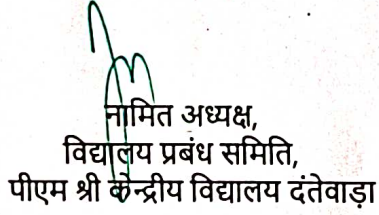 नामित अध्यक्ष,
विद्यालय प्रबंध समिति,
पीएम श्री केन्द्रीय विद्यालय दंतेवाड़ा